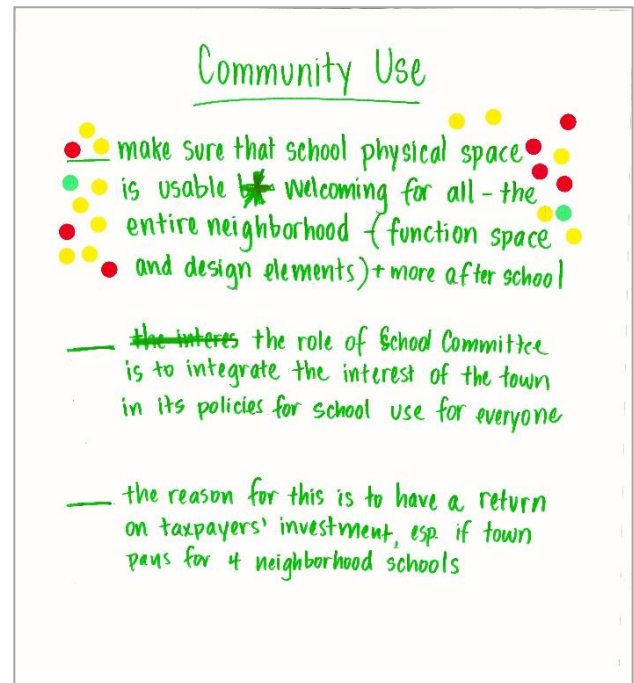 Community Use
make sure that school physical space
is usable welcoming for all - the
entire neighborhood - (function space
and design elements) + more after school
the interes the role of School Committee
is to integrate the interest of the town
in its policies for school use for everyone
the reason for this is to have a return
on taxpayers' investment, esp. if town
pays for 4 neighborhood schools